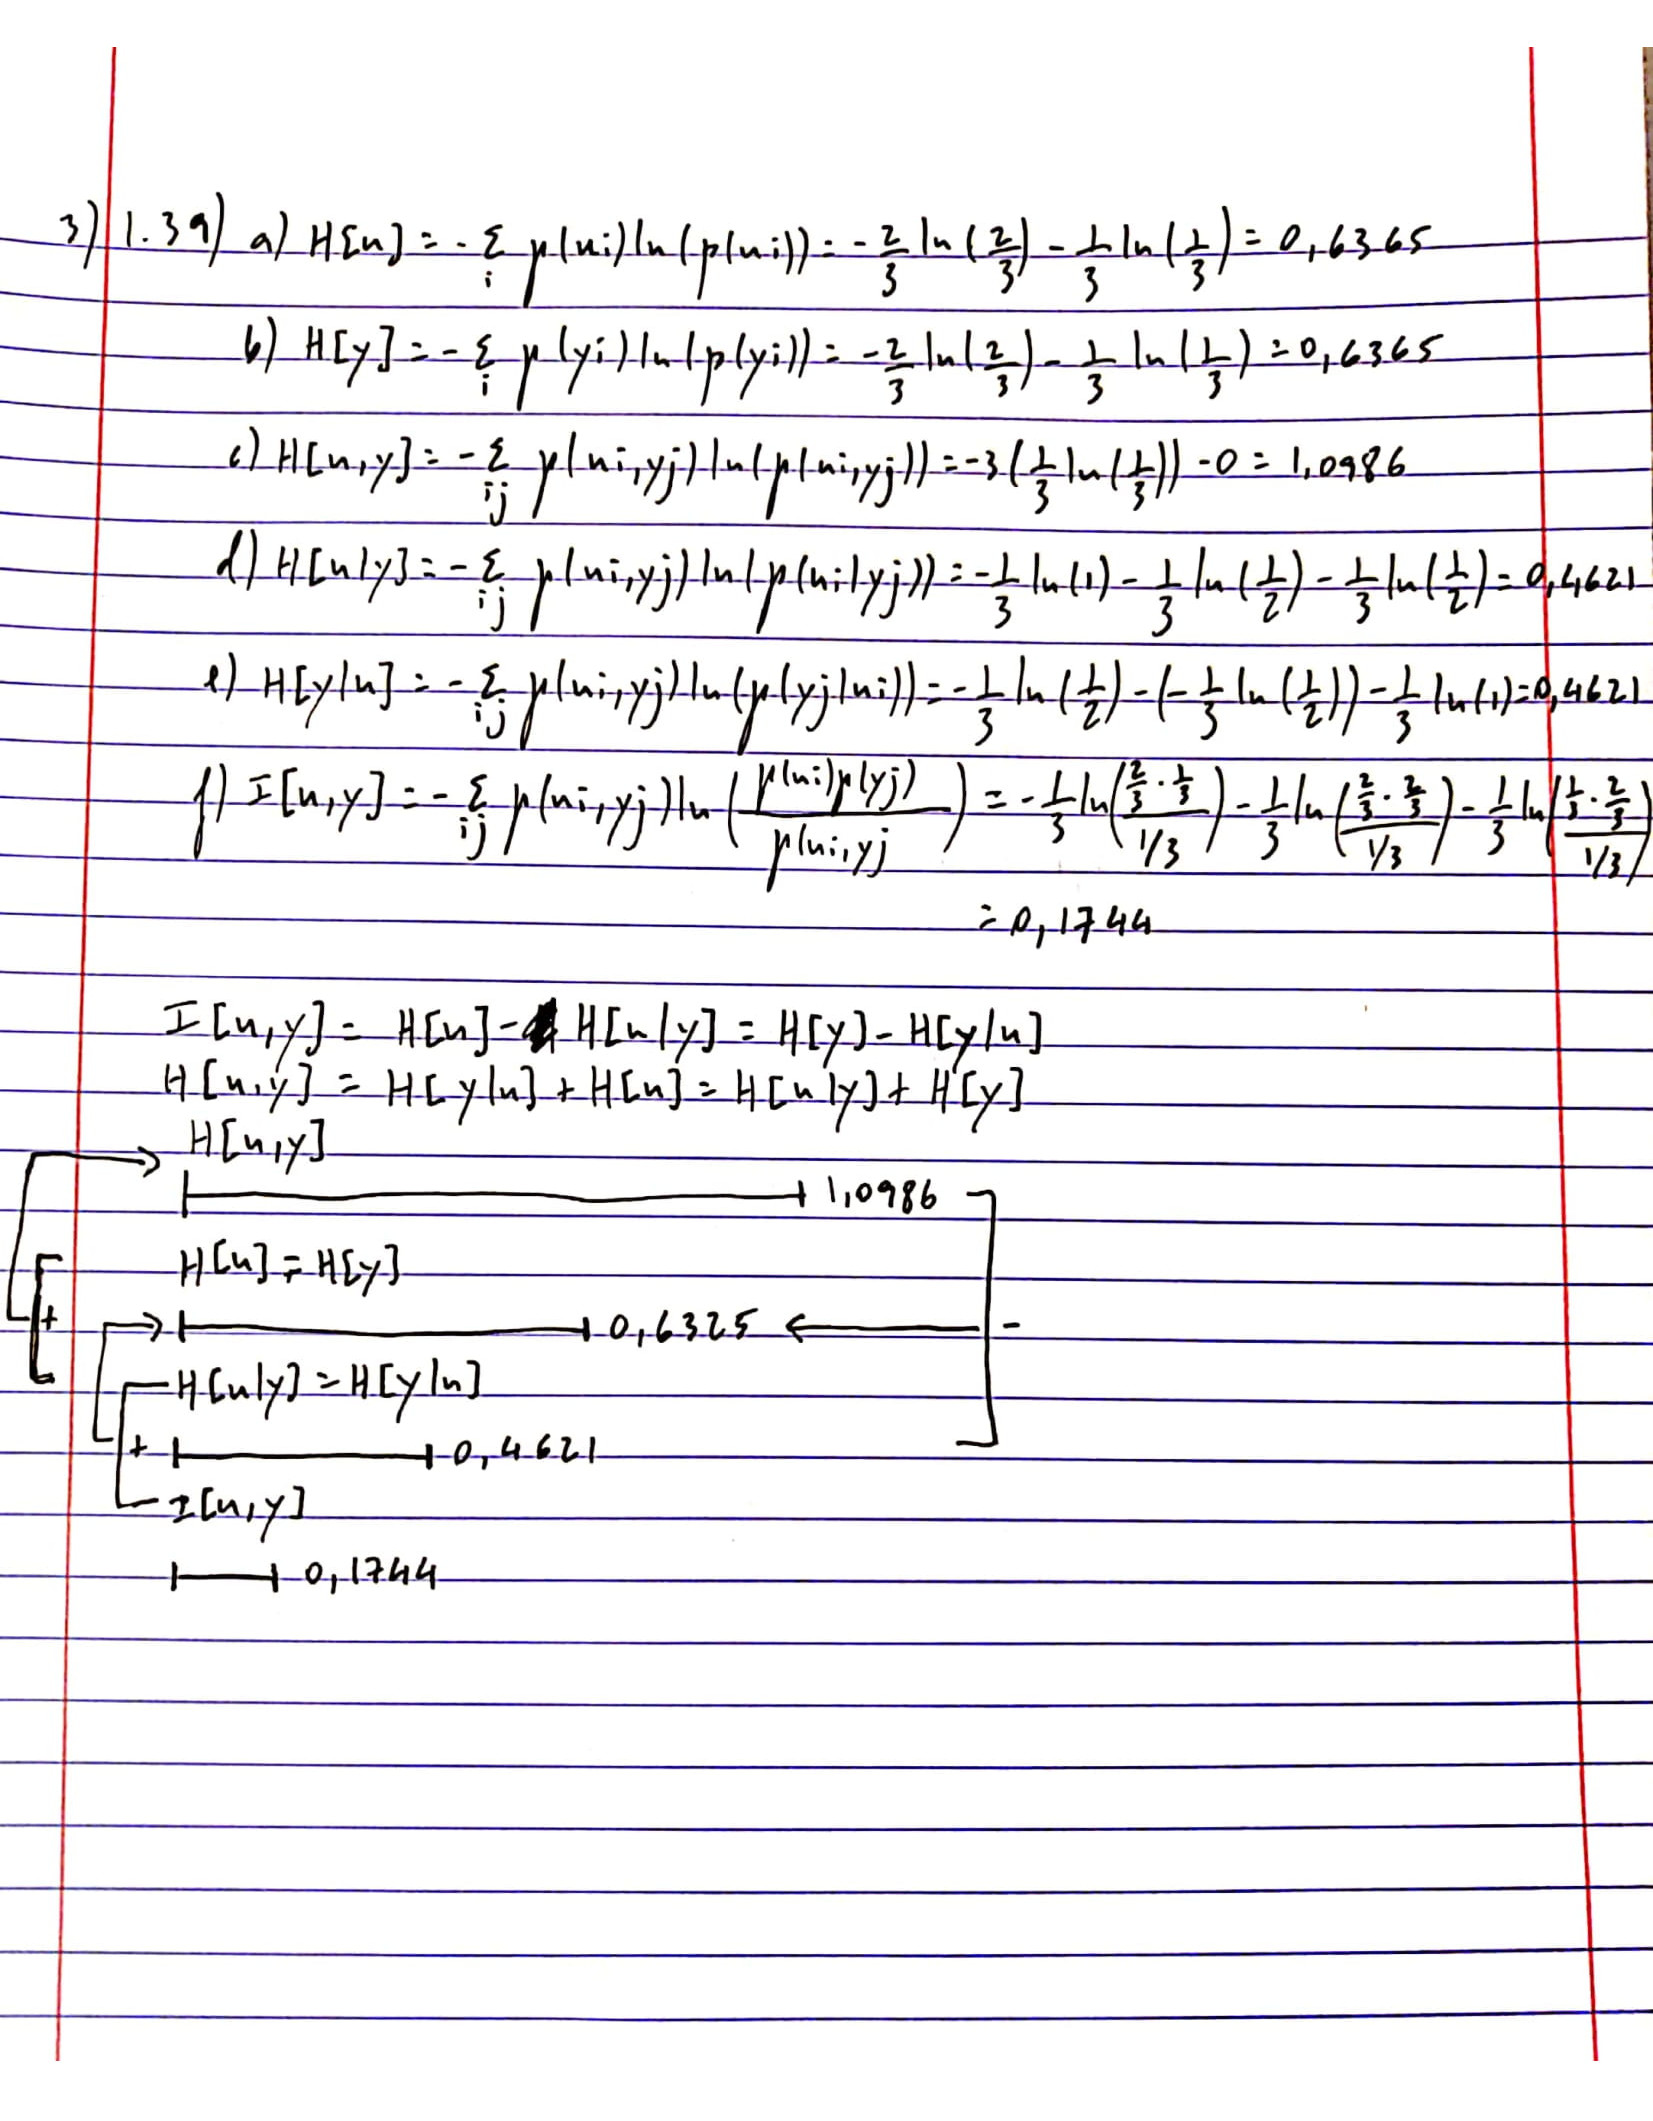 3) 1.39) a) H[x] = -Σ_i p(xi) ln(p(xi)) = -2/3 ln(2/3) - 1/3 ln(1/3) = 0,6365
b) H[y] = -Σ_i p(yi) ln(p(yi)) = -2/3 ln(2/3) - 1/3 ln(1/3) = 0,6365
c) H[x,y] = -Σ_ij p(xi,yj) ln(p(xi,yj)) = -3(1/3 ln(1/3)) - 0 = 1,0986
d) H[x|y] = -Σ_ij p(xi,yj) ln(p(xi|yj)) = -1/3 ln(1) - 1/3 ln(1/2) - 1/3 ln(1/2) = 0,4621
e) H[y|x] = -Σ_ij p(xi,yj) ln(p(yj|xi)) = -1/3 ln(1/2) - (-1/3 ln(1/2)) - 1/3 ln(1) = 0,4621
f) I[x,y] = -Σ_ij p(xi,yj) ln(p(xi)p(yj) / p(xi,yj) = -1/3 ln(2/3 · 1/3 / 1/3) - 1/3 ln(2/3 · 2/3 / 1/3) - 1/3 ln(1/3 · 2/3 / 1/3)
= 0,1744
I[x,y] = H[x] - H[x|y] = H[y] - H[y|x]
H[x,y] = H[y|x] + H[x] = H[x|y] + H[y]
H[x,y]
1,0986
H[x] = H[y]
+ 0,6325 -
H[x|y] = H[y|x]
+ 0,4621
I[x,y]
0,1744